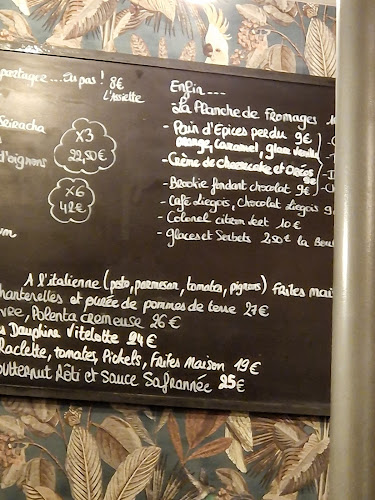 partager... ou pas ! 8€
L'Assiette
Sriracha
d'oignons
x3
22,50€
x6
42€
Enfin....
La Planche de fromages 1
- Pain d'Epices perdu 9€
orange, caramel, glace vanille
- Crème de cheesecake et Oréos
- Brookie fondant chocolat 9€
- Café Liégois, Chocolat Liégois 9
- Colonel citron vert 10€
- Glaces et Sorbets 2,50€ la Bou
A l'italienne (pesto, parmesan, tomates, pignons) Frites mai
hanterelles et purée de pommes de terre 27€
vre, Polenta crémeuse 26€
s Dauphine Vitelotte 24€
Raclette, tomates, Pickels, Frites Maison 19€
utternut Rôti et Sauce Safrannée 25€